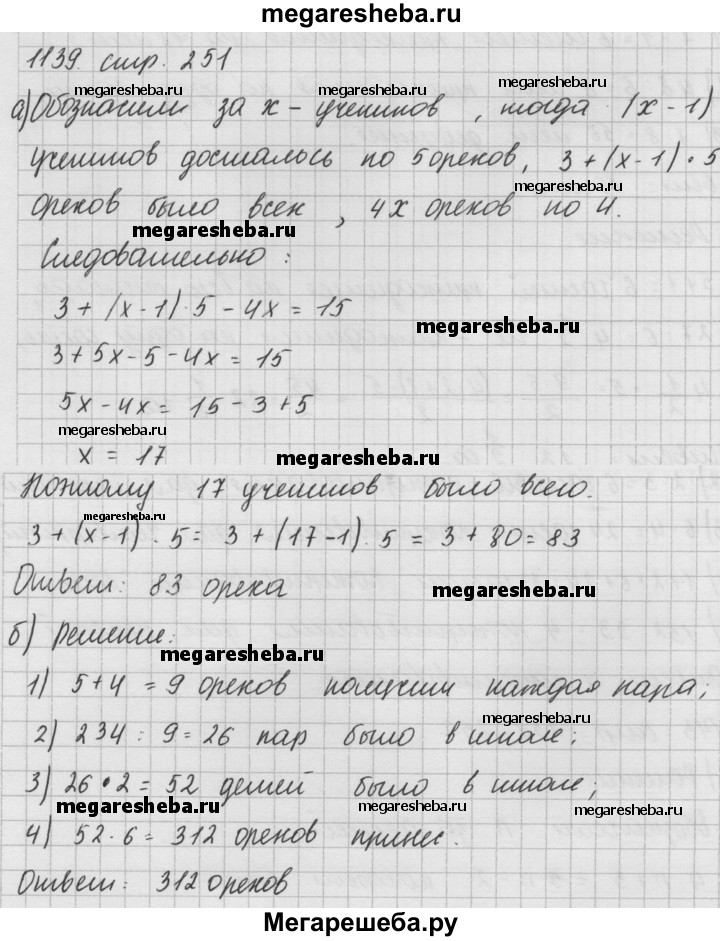 megaresheba.ru
1139 стр. 251
megaresheba.ru megaresheba.ru megaresheba.ru
а) Обозначили за x - учеников, тогда (x-1)
учеников досталось по 5 орехов, 3+(x-1)·5
megaresheba.ru
орехов было всех, 4x орехов по 4.
megaresheba.ru
Следовательно:
3+(x-1)·5-4x=15
megaresheba.ru
3+5x-5-4x=15
5x-4x=15-3+5
megaresheba.ru
x=17
megaresheba.ru
Поэтому 17 учеников было всего.
megaresheba.ru
3+(x-1)·5=3+(17-1)·5=3+80=83
Ответ: 83 ореха
megaresheba.ru
б) Решение:
megaresheba.ru
1) 5+4=9 орехов получили каждая пара;
megaresheba.ru
2) 234:9=26 пар было в школе;
3) 26·2=52 детей было в школе;
megaresheba.ru megaresheba.ru megaresheba.ru
4) 52·6=312 орехов принес.
Ответ: 312 орехов
Мегарешеба.ру